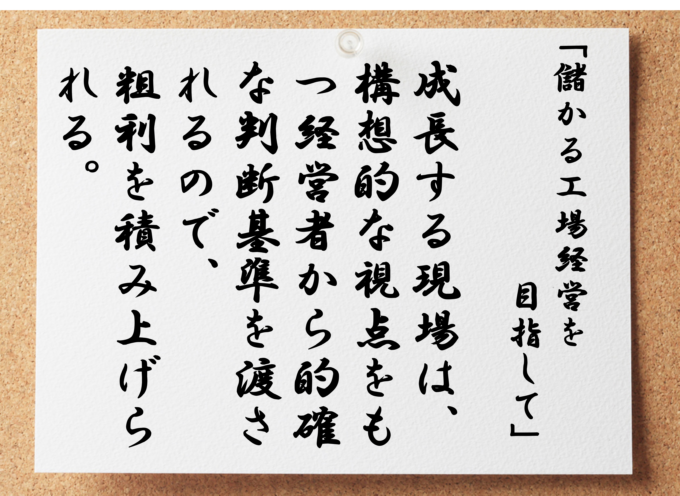 「儲かる工場経営を
目指して」
成長する現場は、
構想的な視点をも
つ経営者から的確
な判断基準を渡さ
れるので、
粗利を積み上げら
れる。